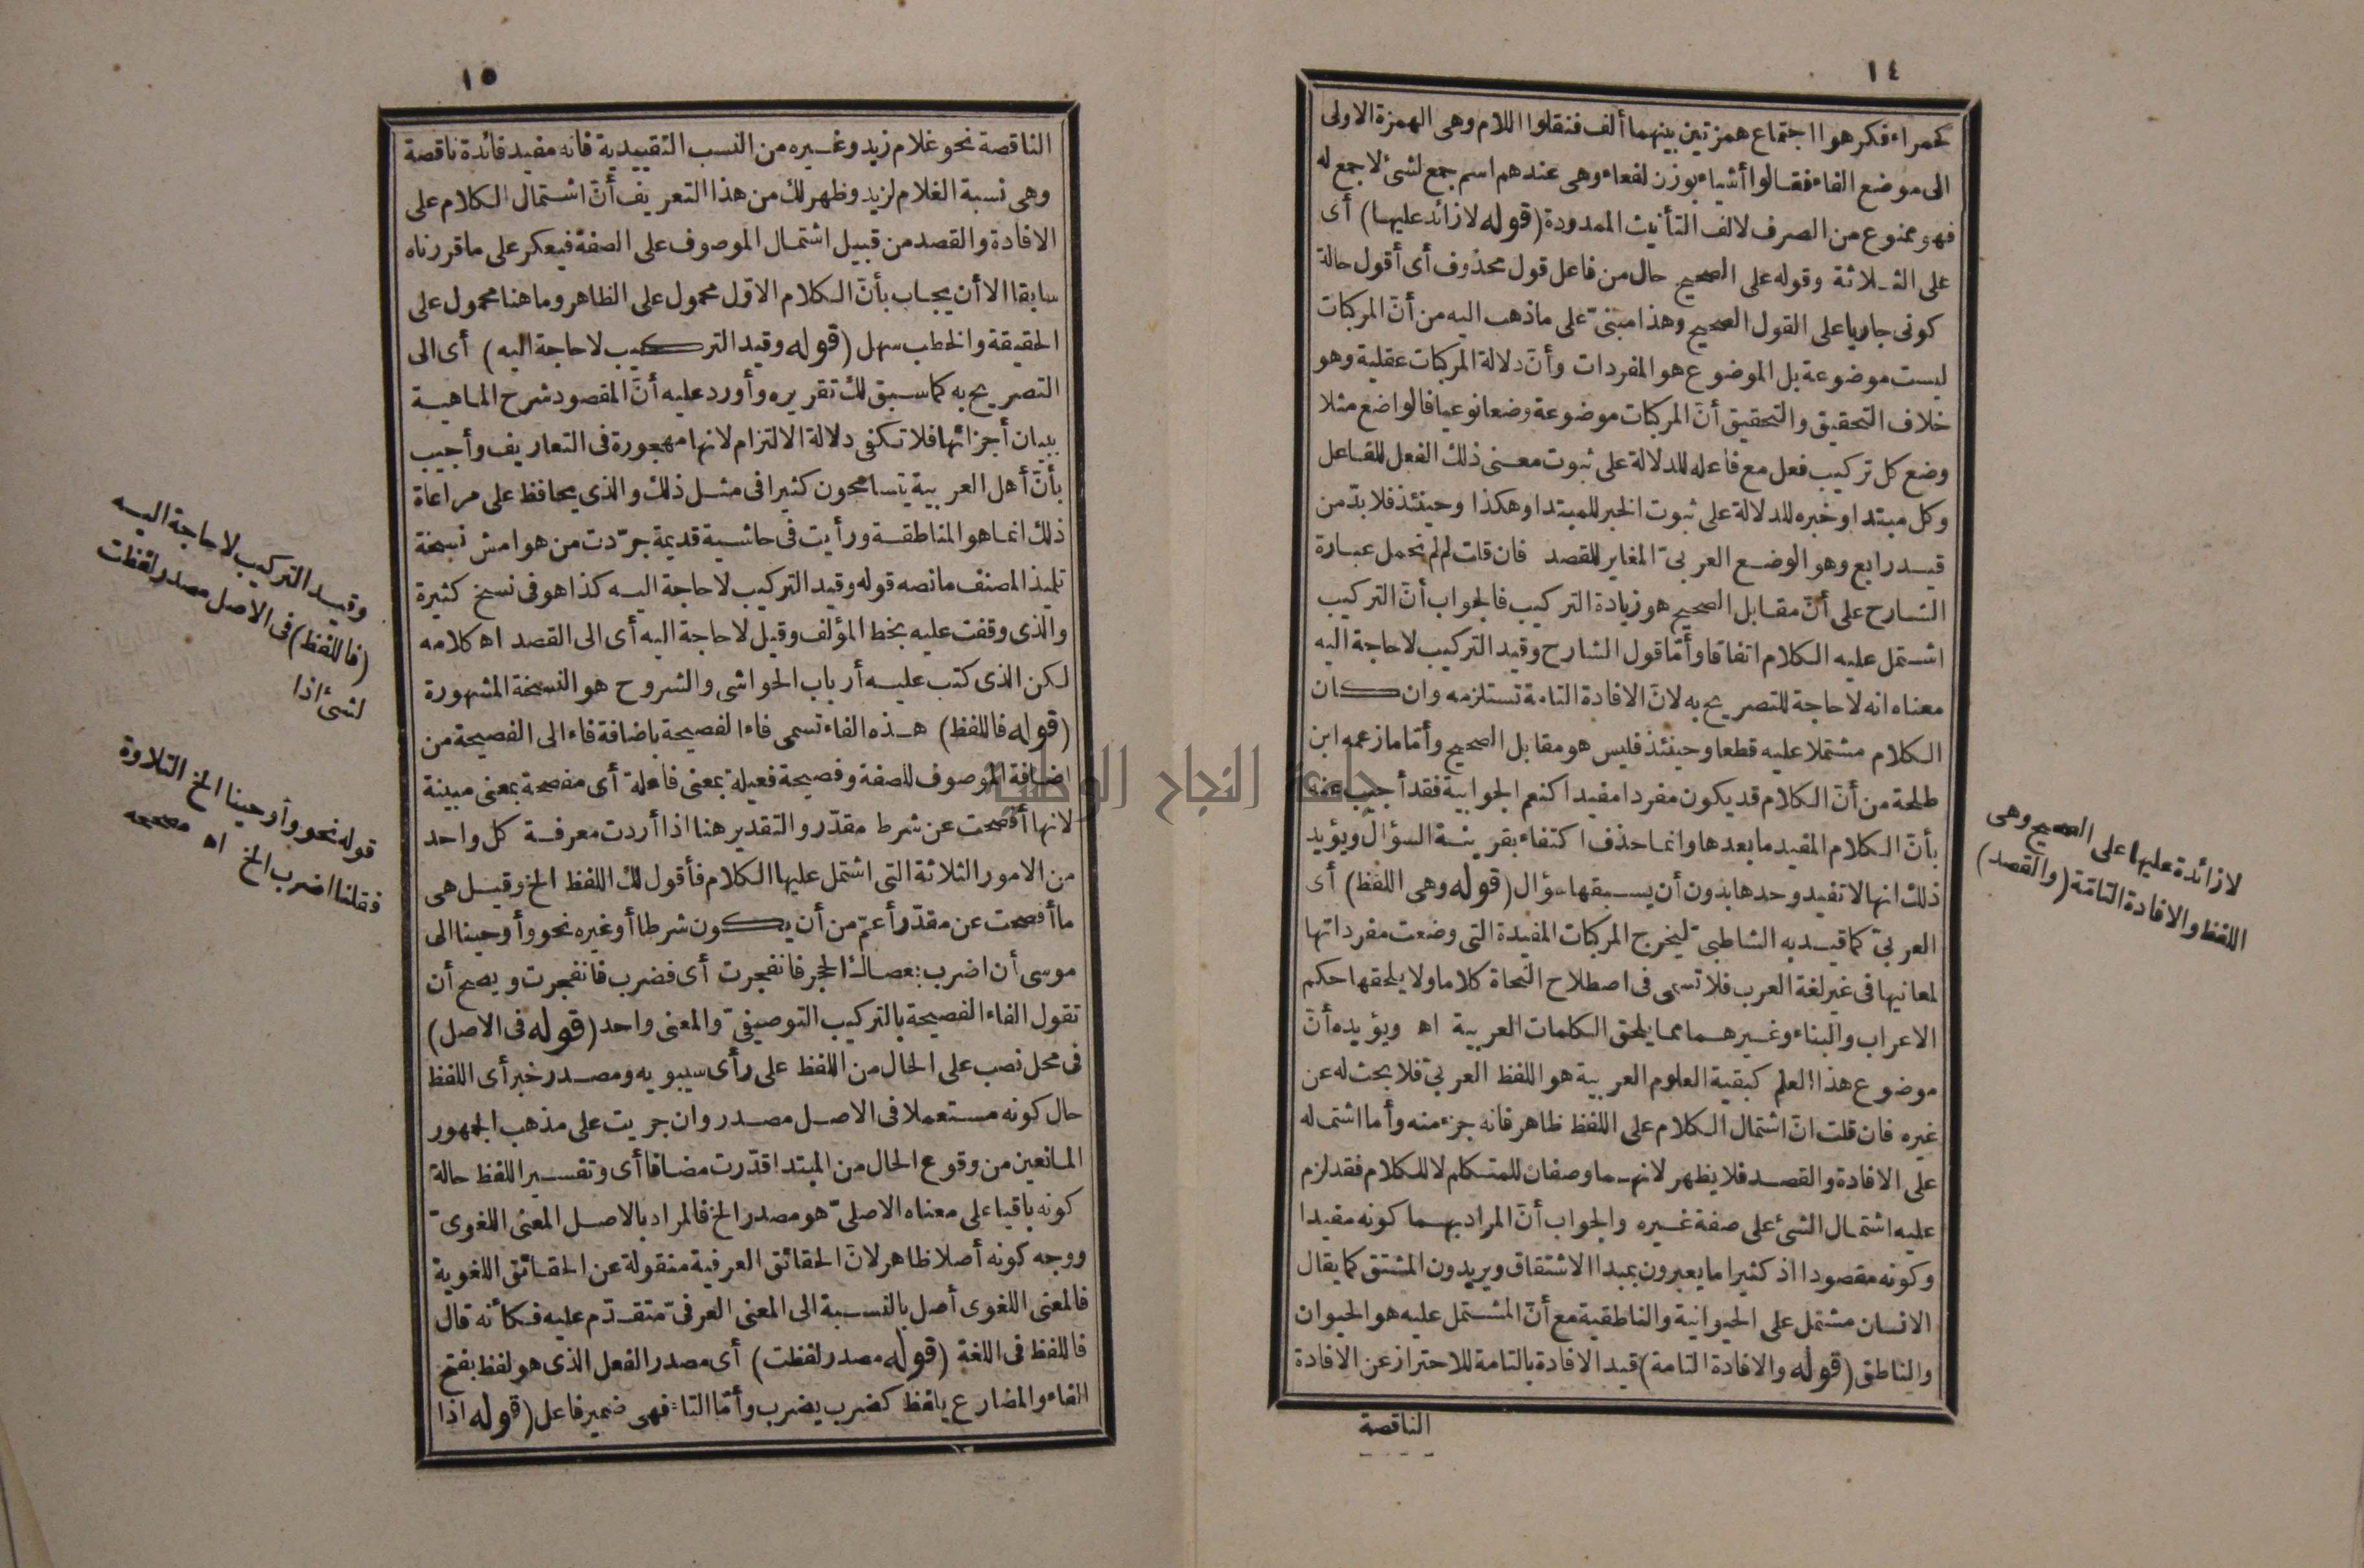 ١٤
كحمراء فكرهوا اجتماع همزتين بينهما ألف فنقلوا اللام وهى الهمزة الاولى
الى موضع الفاء فقالوا أشياء بوزن لفعاء وهى عندهم اسم جمع لشئ لا جمع له
فهو ممنوع من الصرف لالف التأنيث الممدودة (قوله لا زائد عليها) أى
على الثلاثة وقوله على الصحيح حال من فاعل قول محذوف أى أقول حالة
كونى جاريا على القول الصحيح وهذا مبنىّ على ما ذهب اليه من أنّ المركبات
ليست موضوعة بل الموضوع هو المفردات وأنّ دلالة المركبات عقلية وهو
خلاف التحقيق والتحقيق أنّ المركبات موضوعة وضعا نوعيا فالواضع مثلا
وضع كل تركيب فعل مع فاعله للدلالة على ثبوت معنى ذلك الفعل للفاعل
وكل مبتدا وخبره للدلالة على ثبوت الخبر للمبتدا وهكذا وحينئذ فلا بدّ من
قيد رابع وهو الوضع العربىّ المغاير للقصد فان قلت لم لم نحمل عبارة
الشارح على أنّ مقابل الصحيح هو زيادة التركيب فالجواب أنّ التركيب
اشتمل عليه الكلام اتفاقا وأمّا قول الشارح وقيد التركيب لا حاجة اليه
معناه انه لا حاجة للتصريح به لانّ الافادة التامة تستلزمه وان كان
الكلام مشتملا عليه قطعا وحينئذ فليس هو مقابل الصحيح وأمّا ما زعمه ابن
طلحة من أنّ الكلام قد يكون مفردا مفيدا كنعم الجوابية فقد أجيب عنه
بأنّ الكلام المفيد ما بعدها وانما حذف اكتفاء بقرينة السؤال ويؤيد
ذلك انها لا تفيد وحدها بدون أن يسبقها سؤال (قوله وهى اللفظ) أى
العربىّ كما قيد به الشاطبىّ ليخرج المركبات المفيدة التى وضعت مفرداتها
لمعانيها فى غير لغة العرب فلا تسمى فى اصطلاح النحاة كلاما ولا يلحقها حكم
الاعراب والبناء وغيرهما مما يلحق الكلمات العربية اه ويؤيده أنّ
موضوع هذا العلم كبقية العلوم العربية هو اللفظ العربىّ فلا بحث له عن
غيره فان قلت انّ اشتمال الكلام على اللفظ ظاهر فانه جزء منه وأما اشتماله
على الافادة والقصد فلا يظهر لانهما وصفان للمتكلم لا للكلام فقد لزم
عليه اشتمال الشئ على صفة غيره والجواب أنّ المراد بهما كونه مفيدا
وكونه مقصودا اذ كثيرا ما يعبرون بمبدا الاشتقاق ويريدون المشتق كما يقال
الانسان مشتمل على الحيوانية والناطقية مع أنّ المشتمل عليه هو الحيوان
والناطق (قوله والافادة التامة) قيد الافادة بالتامة للاحتراز عن الافادة
الناقصة
لا زائدة عليها على الصحيح وهى
اللفظ والافادة التامّة (والقصد)
١٥
الناقصة نحو غلام زيد وغيره من النسب التقييدية فانه مفيد فائدة ناقصة
وهى نسبة الغلام لزيد وظهر لك من هذا التعريف أنّ اشتمال الكلام على
الافادة والقصد من قبيل اشتمال الموصوف على الصفة فيعكر على ما قررناه
سابقا الا أن يجاب بأنّ الكلام الاوّل محمول على الظاهر وما هنا محمول على
الحقيقة والخطب سهل (قوله وقيد التركيب لا حاجة اليه) أى الى
التصريح به كما سبق لك تقريره وأورد عليه أنّ المقصود شرح الماهية
ببيان أجزائها فلا تكفى دلالة الالتزام لانها مهجورة فى التعاريف وأجيب
بأنّ أهل العربية يتسامحون كثيرا فى مثل ذلك والذى يحافظ على مراعاة
ذلك انما هو المناطقة ورأيت فى حاشية قديمة جرّدت من هوامش نسخة
تلميذ المصنف ما نصه قوله وقيد التركيب لا حاجة اليه كذا هو فى نسخ كثيرة
والذى وقفت عليه بخط المؤلف وقيل لا حاجة اليه أى الى القصد اه كلامه
لكن الذى كتب عليه أرباب الحواشى والشروح هو النسخة المشهورة
(قوله فاللفظ) هذه الفاء تسمى فاء الفصيحة باضافة فاء الى الفصيحة من
اضافة الموصوف للصفة وفصيحة فعيلة بمعنى فاعلة أى مفصحة بمعنى مبينة
لانها أفصحت عن شرط مقدّر والتقدير هنا اذا أردت معرفة كل واحد
من الامور الثلاثة التى اشتمل عليها الكلام فأقول لك اللفظ الخ وقيل هى
ما أفصحت عن مقدّر أعمّ من أن يكون شرطا أو غيره نحو وأوحينا الى
موسى أن اضرب بعصاك الحجر فانفجرت أى فضرب فانفجرت ويصح أن
تقول الفاء الفصيحة بالتركيب التوصيفىّ والمعنى واحد (قوله فى الاصل)
فى محل نصب على الحال من اللفظ على رأى سيبويه ومصدر خبر أى اللفظ
حال كونه مستعملا فى الاصل مصدر وان جريت على مذهب الجمهور
المانعين من وقوع الحال من المبتدا قدّرت مضافا أى وتفسير اللفظ حالة
كونه باقيا على معناه الاصلىّ هو مصدر الخ فالمراد بالاصل المعنى اللغوىّ
ووجه كونه أصلا ظاهر لانّ الحقائق العرفية منقولة عن الحقائق اللغوية
فالمعنى اللغوى أصل بالنسبة الى المعنى العرفىّ متقدّم عليه فكأنه قال
فاللفظ فى اللغة (قوله مصدر لفظت) أى مصدر الفعل الذى هو لفظ بفتح
الفاء والمضارع يلفظ كضرب يضرب وأمّا التاء فهى ضمير فاعل (قوله اذا
وقيد التركيب لا حاجة اليه
(فاللفظ) فى الاصل مصدر لفظت
لشئ اذا
قوله نحو وأوحينا الخ التلاوة
فقلنا اضرب الخ اه مصححه
جامعة النجاح الوطنية